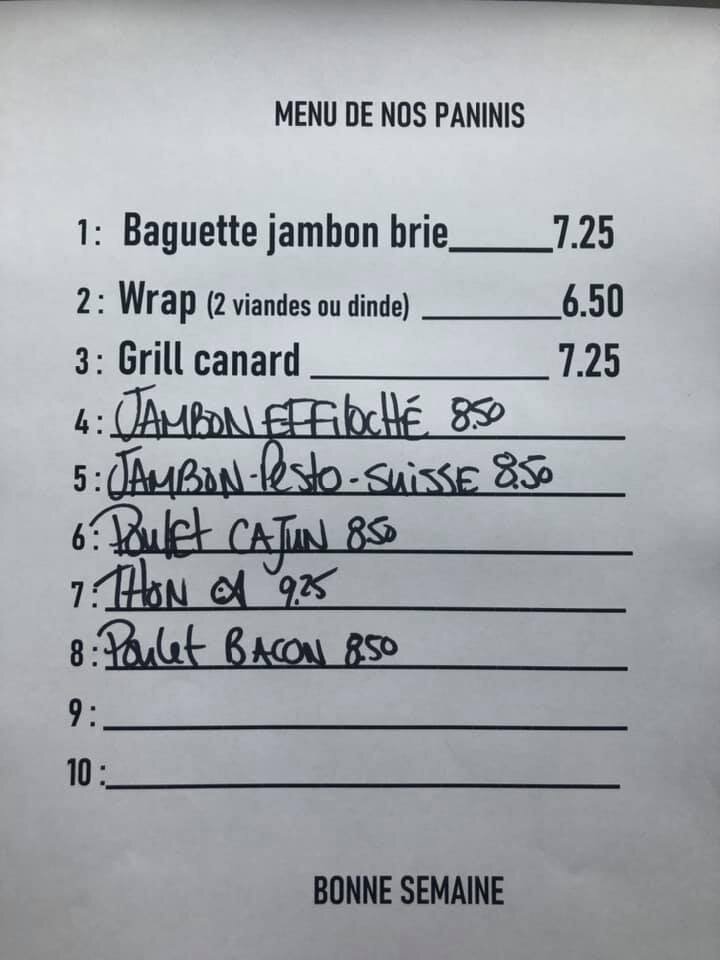 MENU DE NOS PANINIS
1: Baguette jambon brie______7.25
2: Wrap (2 viandes ou dinde) _________6.50
3: Grill canard _______________ 7.25
4: JAMBON EFFILOCHÉ 8.50
5: JAMBON-Pesto-SUISSE 8.50
6: Poulet CAJUN 8.50
7: THON 9.25
8: Poulet BACON 8.50
9:
10:
BONNE SEMAINE